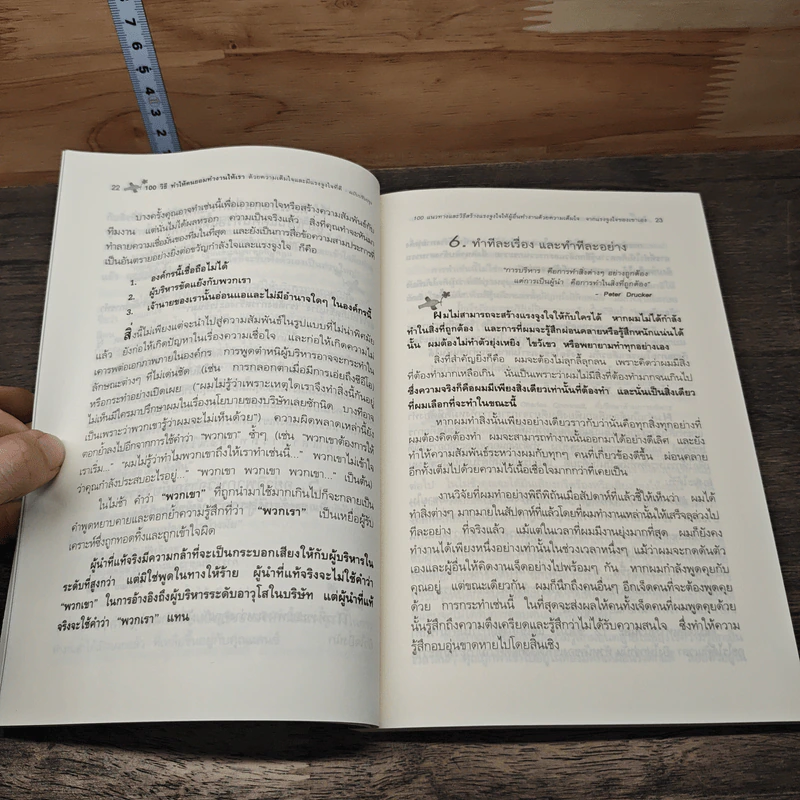 7
6
5
4
3
2
22
100 วิธี ทำให้คนยอมทำงานให้เรา ด้วยความเต็มใจและมีแรงจูงใจที่ดี
บางครั้งคุณอาจทำเช่นนี้เพื่อเอาอกเอาใจหรือสร้างความสัมพันธ์กับ
ทีมงาน แต่นั่นไม่ได้ผลหรอก ความเป็นจริงแล้ว สิ่งที่คุณทำจะหันมา
ทำลายความเชื่อมั่นของทีมในที่สุด และยังเป็นการสื่อข้อความสามประการที่
เป็นอันตรายอย่างยิ่งต่อขวัญกำลังใจและแรงจูงใจ ก็คือ
1. องค์กรนี้เชื่อถือไม่ได้
2. ผู้บริหารขัดแย้งกับพวกเรา
3. เจ้านายของเรานั้นอ่อนแอและไม่มีอำนาจใดๆ ในองค์กรนี้
สิ่งนี้ไม่เพียงแต่จะนำไปสู่ความสัมพันธ์ในรูปแบบที่ไม่น่าพิสมัย
แล้ว ยังก่อให้เกิดปัญหาในเรื่องความเชื่อใจ และก่อให้เกิดความไม่
เคารพต่อเอกภาพภายในองค์กร การพูดตำหนิผู้บริหารอาจจะกระทำใน
ลักษณะต่างๆ ที่ไม่เด่นชัด (เช่น การกลอกตาเมื่อมีการเอ่ยถึงซีอีโอ)
หรือกระทำอย่างเปิดเผย ("ผมไม่รู้ว่าเพราะเหตุใดเราจึงทำสิ่งนี้กันอยู่
ไม่เห็นมีใครมาปรึกษาผมในเรื่องนโยบายของบริษัทเลยซักนิด บางทีอาจ
เป็นเพราะว่าพวกเขารู้ว่าผมจะไม่เห็นด้วย") ความผิดพลาดเหล่านี้ยัง
ตอกย้ำลงไปอีกจากการใช้คำว่า "พวกเขา" ซ้ำๆ (เช่น "พวกเขาต้องการให้
เราเริ่ม..." "ผมไม่รู้ว่าทำไมพวกเขาถึงให้เราทำเช่นนี้..." "พวกเขาไม่เข้าใจ
ว่าคุณกำลังประสบอะไรอยู่..." "พวกเขา พวกเขา พวกเขา..." เป็นต้น)
ในไม่ช้า คำว่า "พวกเขา" ที่ถูกนำมาใช้มากเกินไปก็จะกลายเป็น
คำพูดหยาบคายและตอกย้ำความรู้สึกที่ว่า "พวกเรา" เป็นเหยื่อผู้รับ
เคราะห์ซึ่งถูกทอดทิ้งและถูกเข้าใจผิด
ผู้นำที่แท้จริงมีความกล้าที่จะเป็นกระบอกเสียงให้กับผู้บริหารใน
ระดับที่สูงกว่า แต่มิใช่พูดในทางให้ร้าย ผู้นำที่แท้จริงจะไม่ใช้คำว่า
"พวกเขา" ในการอ้างอิงถึงผู้บริหารระดับอาวุโสในบริษัท แต่ผู้นำที่แท้
จริงจะใช้คำว่า "พวกเรา" แทน
23
6. ทำทีละเรื่อง และทำทีละอย่าง
"การบริหาร คือการทำสิ่งต่างๆ อย่างถูกต้อง
แต่การเป็นผู้นำ คือการทำในสิ่งที่ถูกต้อง"
- Peter Drucker
ผมไม่สามารถจะสร้างแรงจูงใจให้กับใครได้ หากผมไม่ได้กำลัง
ทำในสิ่งที่ถูกต้อง และการที่ผมจะรู้สึกผ่อนคลายหรือรู้สึกหนักแน่นได้
นั้น ผมต้องไม่ทำตัวยุ่งเหยิง ไขว้เขว หรือพยายามทำทุกอย่างเอง
สิ่งที่สำคัญยิ่งก็คือ ผมจะต้องไม่ลุกลี้ลุกลน เพราะคิดว่าผมมีสิ่ง
ที่ต้องทำมากเหลือเกิน นั่นเป็นเพราะว่าผมไม่มีสิ่งที่ต้องทำมากจนเกินไป
ซึ่งความจริงก็คือผมมีเพียงสิ่งเดียวเท่านั้นที่ต้องทำ และนั่นเป็นสิ่งเดียว
ที่ผมเลือกที่จะทำในขณะนี้
หากผมทำสิ่งนั้นเพียงอย่างเดียวราวกับว่านั่นคือทุกสิ่งทุกอย่างที่
ผมต้องคิดต้องทำ ผมจะสามารถทำงานนั้นออกมาได้อย่างดีเลิศ และยัง
ทำให้ความสัมพันธ์ระหว่างผมกับทุกๆ คนที่เกี่ยวข้องดีขึ้น ผ่อนคลาย
อีกทั้งเต็มไปด้วยความไว้เนื้อเชื่อใจมากกว่าที่เคยเป็น
งานวิจัยที่ผมทำอย่างพิถีพิถันเมื่อสัปดาห์ที่แล้วชี้ให้เห็นว่า ผมได้
ทำสิ่งต่างๆ มากมายในสัปดาห์ที่แล้วโดยที่ผมทำงานเหล่านั้นให้เสร็จลุล่วงไป
ทีละอย่าง ที่จริงแล้ว แม้แต่ในเวลาที่ผมมีงานยุ่งมากที่สุด ผมก็ยังคง
ทำงานได้เพียงหนึ่งอย่างเท่านั้นในช่วงเวลาหนึ่งๆ แม้ว่าผมจะกดดันตัว
เองและผู้อื่นให้คิดงานเจ็ดอย่างไปพร้อมๆ กัน หากผมกำลังพูดคุยกับ
คุณอยู่ แต่ขณะเดียวกัน ผมก็นึกถึงคนอื่นๆ อีกเจ็ดคนที่จะต้องพูดคุย
ด้วย การกระทำเช่นนี้ ในที่สุดจะส่งผลให้คนทั้งเจ็ดคนที่ผมพูดคุยด้วย
นั้นรู้สึกถึงความตึงเครียดและรู้สึกว่าไม่ได้รับความสนใจ ซึ่งทำให้ความ
รู้สึกอบอุ่นขาดหายไปโดยสิ้นเชิง